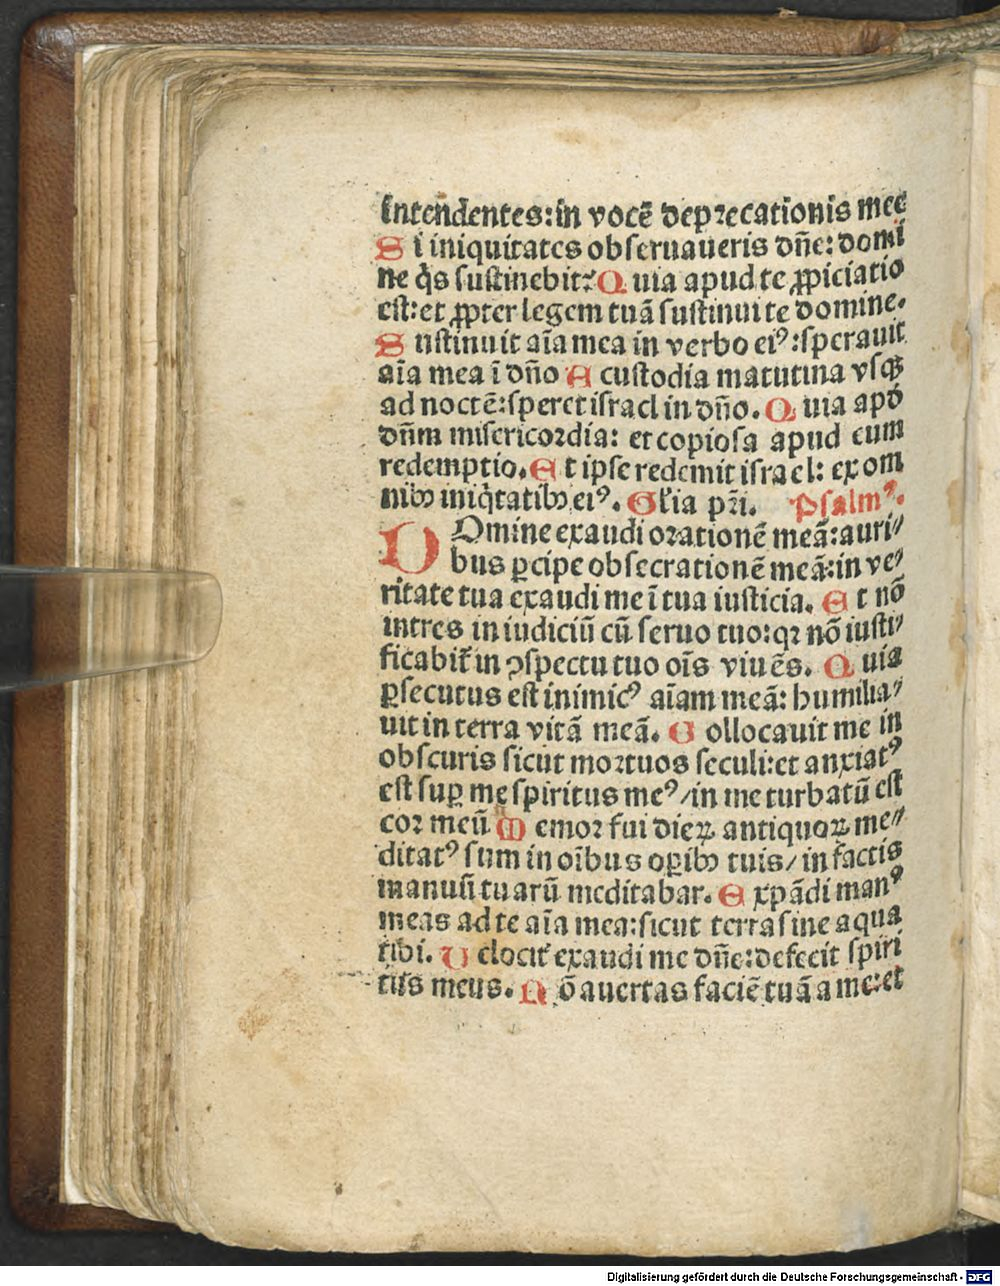 intendentes: in vocē deprecationis mee
Si iniquitates obseruaueris dn̄e: domi
ne q̇s sustinebit? Quia apud te ꝓpiciatio
est: et ꝓpter legem tuā sustinui te domine.
Sustinuit aīa mea in verbo eiꝰ: sperauit
aīa mea ī dn̄o A custodia matutina vsqꝫ
ad noctē: speret israel in dn̄o. Quia apd̄
dn̄m misericordia: et copiosa apud eum
redemptio. Et ipse redemit israel: ex om
nibꝫ iniq̇tatibꝫ eiꝰ. Gl̄ia pr̄i. Psalmꝰ.
DOmine exaudi orationē meā: auri//
bus ꝑcipe obsecrationē meā: in ve/
ritate tua exaudi me ī tua iusticia. Et nō
intres in iudiciū cū seruo tuo: qꝛ nō iusti/
ficabit᷑ in ꝯspectu tuo oīs viuēs. Quia
ꝑsecutus est inimicꝰ aīam meā: humilia/
uit in terra vitā meā. Collocauit me in
obscuris sicut mortuos seculi: et anxiatꝰ
est suꝑ me spiritus meꝰ/in me turbatū est
cor meū Memor fui dieꝝ antiquoꝝ me//
ditatꝰ sum in oībus oꝑibꝫ tuis/in factis
manuū tuarū meditabar. Expādi manꝰ
meas ad te aīa mea: sicut terra sine aqua
tibi. Velocit᷑ exaudi me dn̄e: defecit spiri
tus meus. Nō auertas faciē tuā a me: et
Digitalisierung gefördert durch die Deutsche Forschungsgemeinschaft - DFG